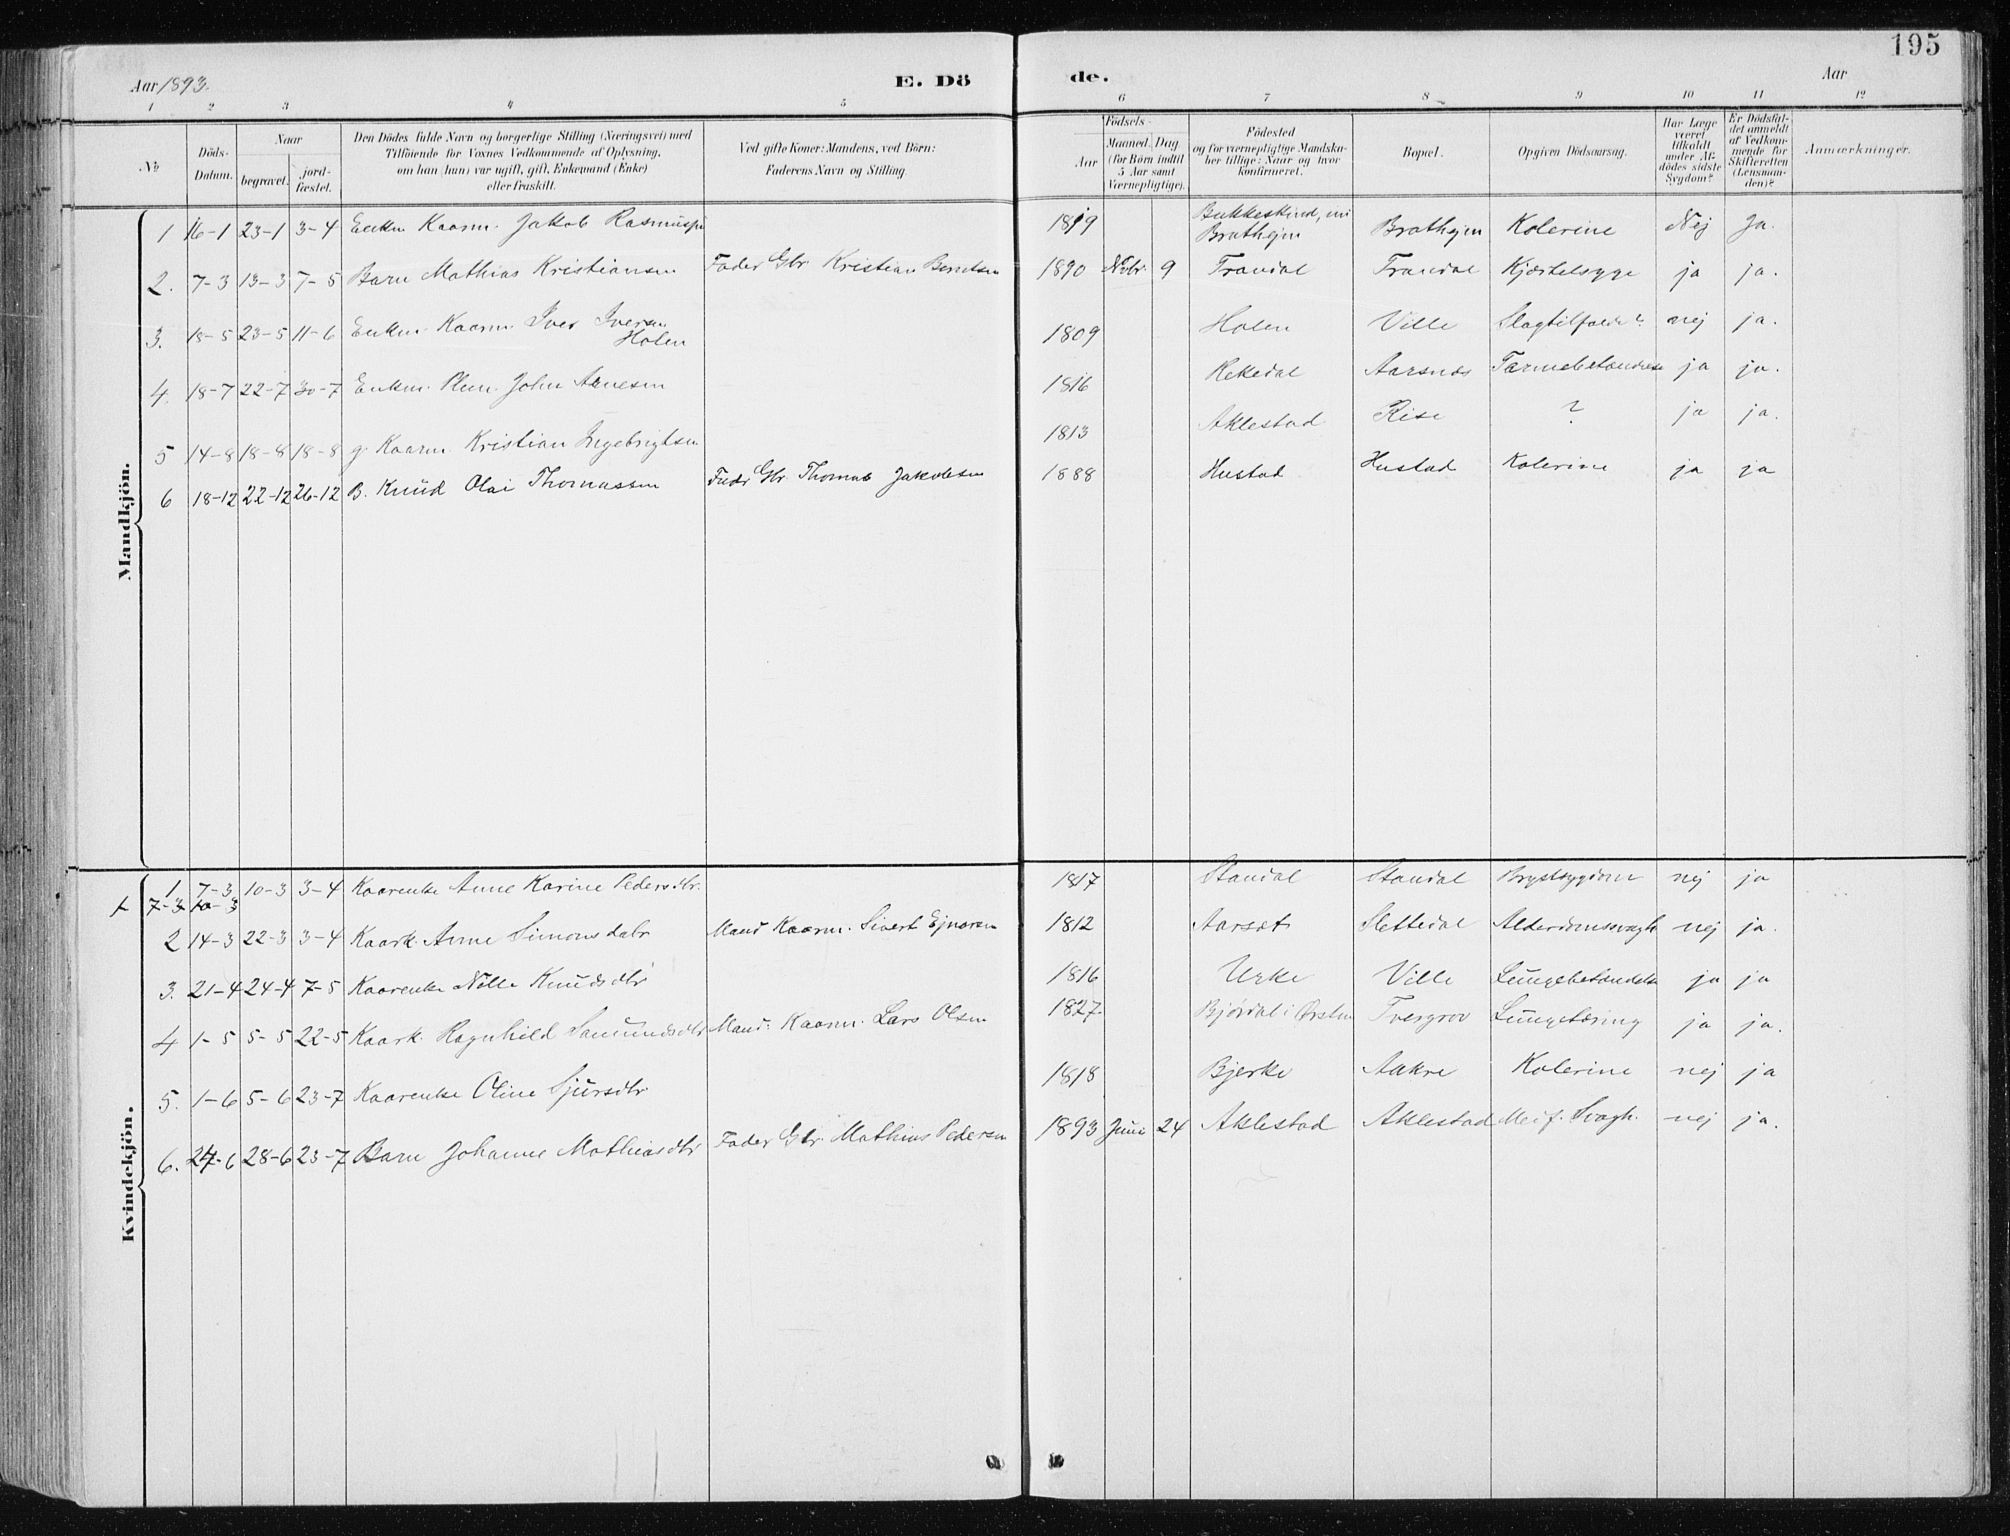 195
Aar 1893.
E. Dö de.
Aar
1 2 3 4 5 6 7 8 9 10 11 12
No
Döds-Datum.
Naar
begravet.
jord-fæstet.
Den Dödes fulde Navn og borgerlige Stilling (Næringsvei) med
Tilföiende for Voxnes Vedkommende af Oplysning,
om han (hun) var ugift, gift, Enkemand (Enke)
eller fraskilt.
Ved gifte Koner: Mandens, ved Börn:
Faderens Navn og Stilling.
Födsels-
Aar
Maaned. Dag
(for Börn indtil
5 Aar samt
Værnepligtige).
Födested
og for værnepligtige Mandska-
ber tillige: Naar og hvor
konfirmeret.
Bopæl.
Opgiven Dödsaarsag.
Har Læge
været
tilkaldt
under Af-
dödes sidste
Sygdom?
Er Dödsfal-
det anmeldt
af Vedkom-
mende for
Skifteretten
(Lensman-
den)?
Anmærkninger.
Mandkjön.
1 16-1 23-1 3-4 Enkm Kaarm. Jakob Rasmussen 1819 Brathejm Brathejm Kolerine Nej Ja.
2. 7-3 13-3 7-5 Barn Mathias Kristiansen Fader Gbr. Kristian Berntsen 1890 Novbr. 9 Trandal Trandal Kjertelsyge ja ja.
3. 18-5 23-5 11-6 Enkm. Kaarm. Iver Iversen Holen 1809 Holen Ville Slagtilfælde? nej ja.
4. 18-7 22-7 30-7 Enkm. John Arnesen 1816 Rekkedal Aarsnes Tarmebetændelse ja ja.
5 14-8 18-8 18-8 g. Kaarm. Kristian Ingebrigtsen 1813 Aklestad Rise ? ja ja.
6 18-12 22-12 26-12 B. Knud Olai Thomassen Fader Gbr. Thomas Jakobsen 1888 Hustad Hustad Kolerine ja ja
Kvindekjön.
1. 7-3 10-3 3-4 Kaarenke Anne Karine Pedersdtr. 1817 Standal Standal Brystsygdom nej ja
7-3 10-3
2 14-3 22-3 3-4 Kaark. Anne Simonsdatr Mand Kaarm. Sivert Ejnarsen 1812 Aarset Slettedal Alderdomssvagh. nej ja.
3. 21-4 24-4 7-5 Kaarenke Nille Knudsdtr 1816 Urke Ville Lungebetændelse ja ja
4 1-5 5-5 22-5 Kaark. Ragnhild Samundsdtr Mand: Kaarm. Lars Olsen 1827. Bjørdal i Ørsten Tvergrov Lungetæring ja ja.
5. 1-6 5-6 23-7 Kaarenke Oline Sjursdtr 1818 Bjerke Aakre Kolerine nej ja
6. 24-6 28-6 23-7 Barn Johanne Mathiasdtr Fader Gbr. Mathias Pedersen 1893 Juni 24 Aklestad Aklestad Medf. Svagh. nej ja.